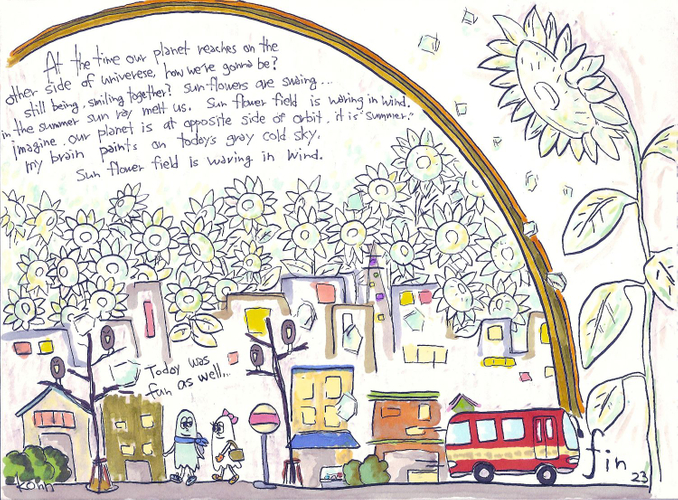 At the time our planet reaches on the
other side of univerese, how we're gonna be?
still being smiling together? sun-flowers are swaing...
in the summer sun ray melt us. Sun flower field is waving in wind.
Imagine. our planet is at opposite side of orbit, it is "summer."
my brain paints on today's gray cold sky.
Sun flower field is waving in wind.
Today was
fun as well...
fin
23
KOhn